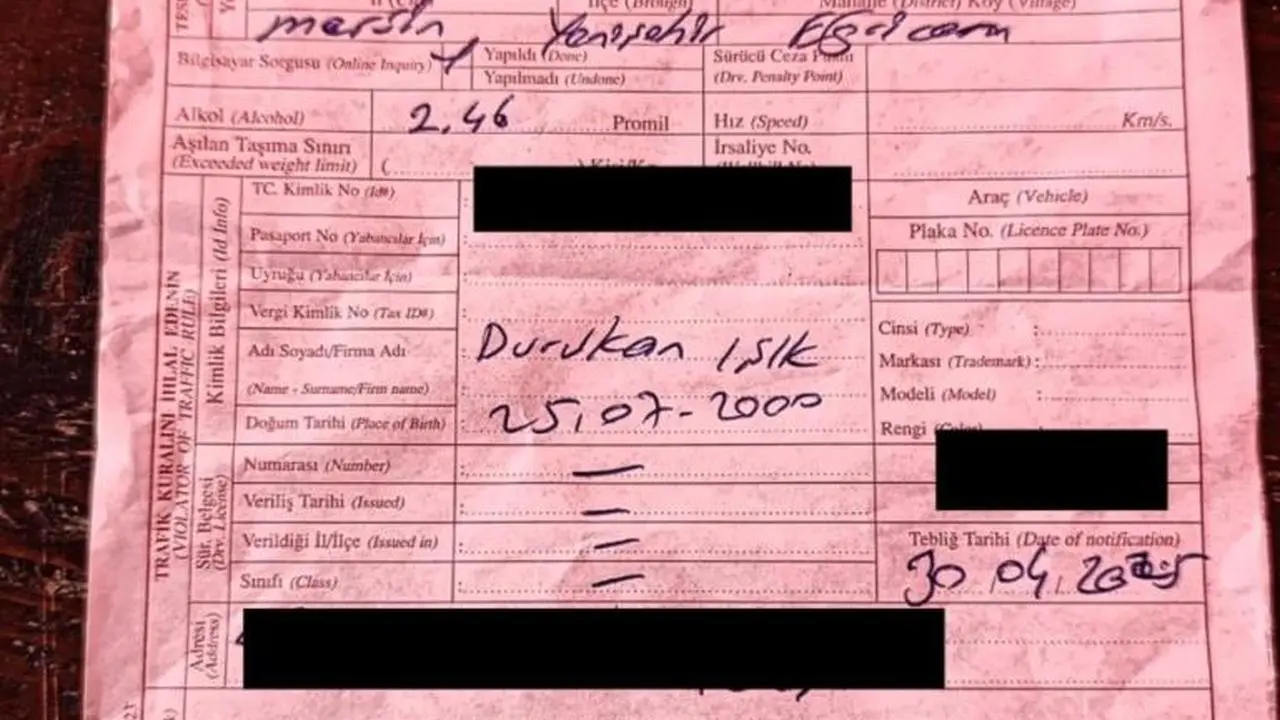 İl (City) İlçe (Brough) Mahalle (District) Köy (Village)
mersin Yenişehir Eğriçam
Bilgisayar Sorgusu (Online Inquiry) Yapıldı (Done) Sürücü Ceza Puanı
Yapılmadı (Undone) (Drv. Penalty Point)
Alkol (Alcohol) 2,46 Promil Hız (Speed) Km/s.
Aşılan Taşıma Sınırı İrsaliye No.
(Exceeded weight limit) (
TRAFİK KURALINI İHLAL EDENİN
(VIOLATOR OF TRAFFIC RULE)
Kimlik Bilgileri (Id Info)
TC. Kimlik No (Id#) : Araç (Vehicle)
Pasaport No (Yabancılar İçin) : Plaka No. (Licence Plate No.)
Uyruğu (Yabancılar İçin) :
Vergi Kimlik No (Tax ID#) : Cinsi (Type) :
Adı Soyadı/Firma Adı : Durukan IŞIK Markası (Trademark) :
(Name - Surname/Firm name) : Modeli (Model) :
Doğum Tarihi (Place of Birth) : 25.07-2000 Rengi
Sür. Belgesi
(Drv. License)
Numarası (Number) : —
Veriliş Tarihi (Issued) : —
Verildiği İl/İlçe (Issued in) : — Tebliğ Tarihi (Date of notification)
Sınıfı (Class) : — 30.04.2025
Adresi
(Address)